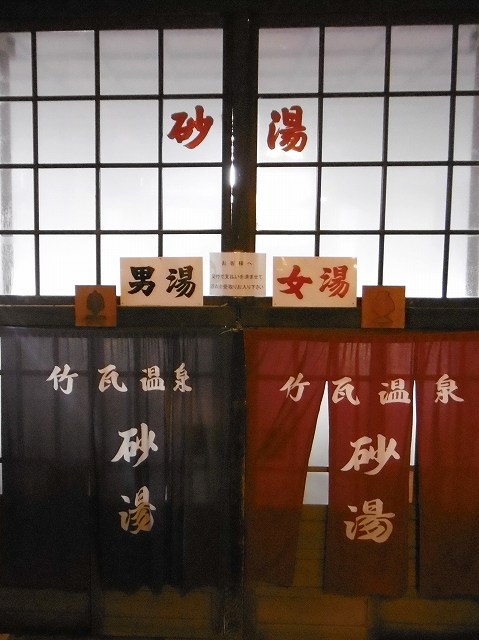 砂湯
男湯
お客様へ
女湯
竹瓦温泉
砂湯
竹瓦温泉
砂湯